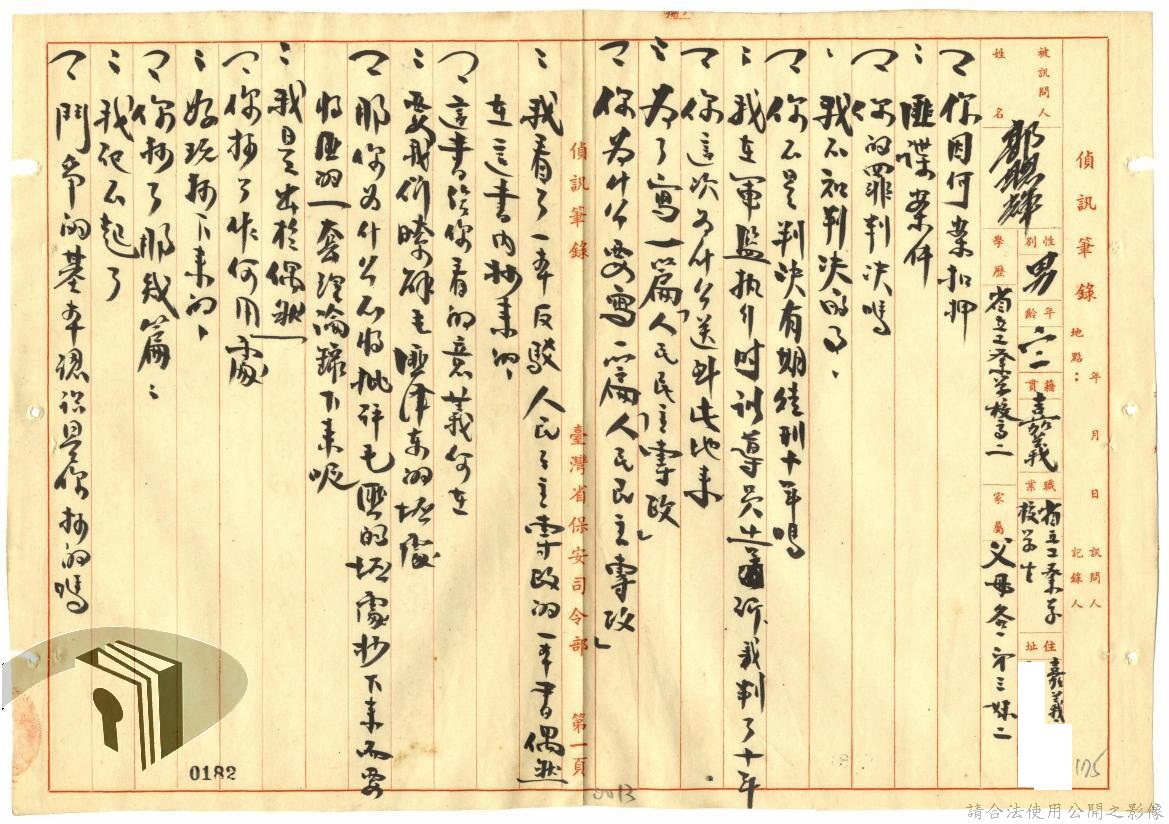 偵訊筆錄 地點： 年 月 日 訊問人 記錄人
被訊問人姓名 郭聰輝 性別 男 年齡 二二 籍貫 嘉義 職業 省立工業學校學生 住址 嘉義
學歷 省立工業學校高二 家屬 父母各一弟三妹二
問 你因何案扣押
： 匪諜案件
問 你的罪判決嗎
： 我不知判決的了、
問 你不是判決有期徒刑十年嗎
： 我在軍監執行時訓導員告訴我判了十年
問 你這次為什么送到此地來
： 為了寫一篇「人民民主專政」
問 你為什么要寫一篇「人民民主專政」
偵訊筆錄 臺灣省保安司令部 第一頁
： 我看了一本反駁人民民主專政的一本書偶然
在這書內抄來的、
問 這書給你看的意義何在
： 要我們瞭解毛匪澤東的壞處
問 那你為什么不將批評毛匪的壞處抄下來而要
將匪的一套理論錄下來呢
： 我是出於偶然
問 你抄了作何用處
： 好玩抄下來的、
問 你抄了那幾篇：
： 我記不起了
問 鬥爭的基本認識是你抄的嗎
0182
0013
175
請合法使用公開之影像